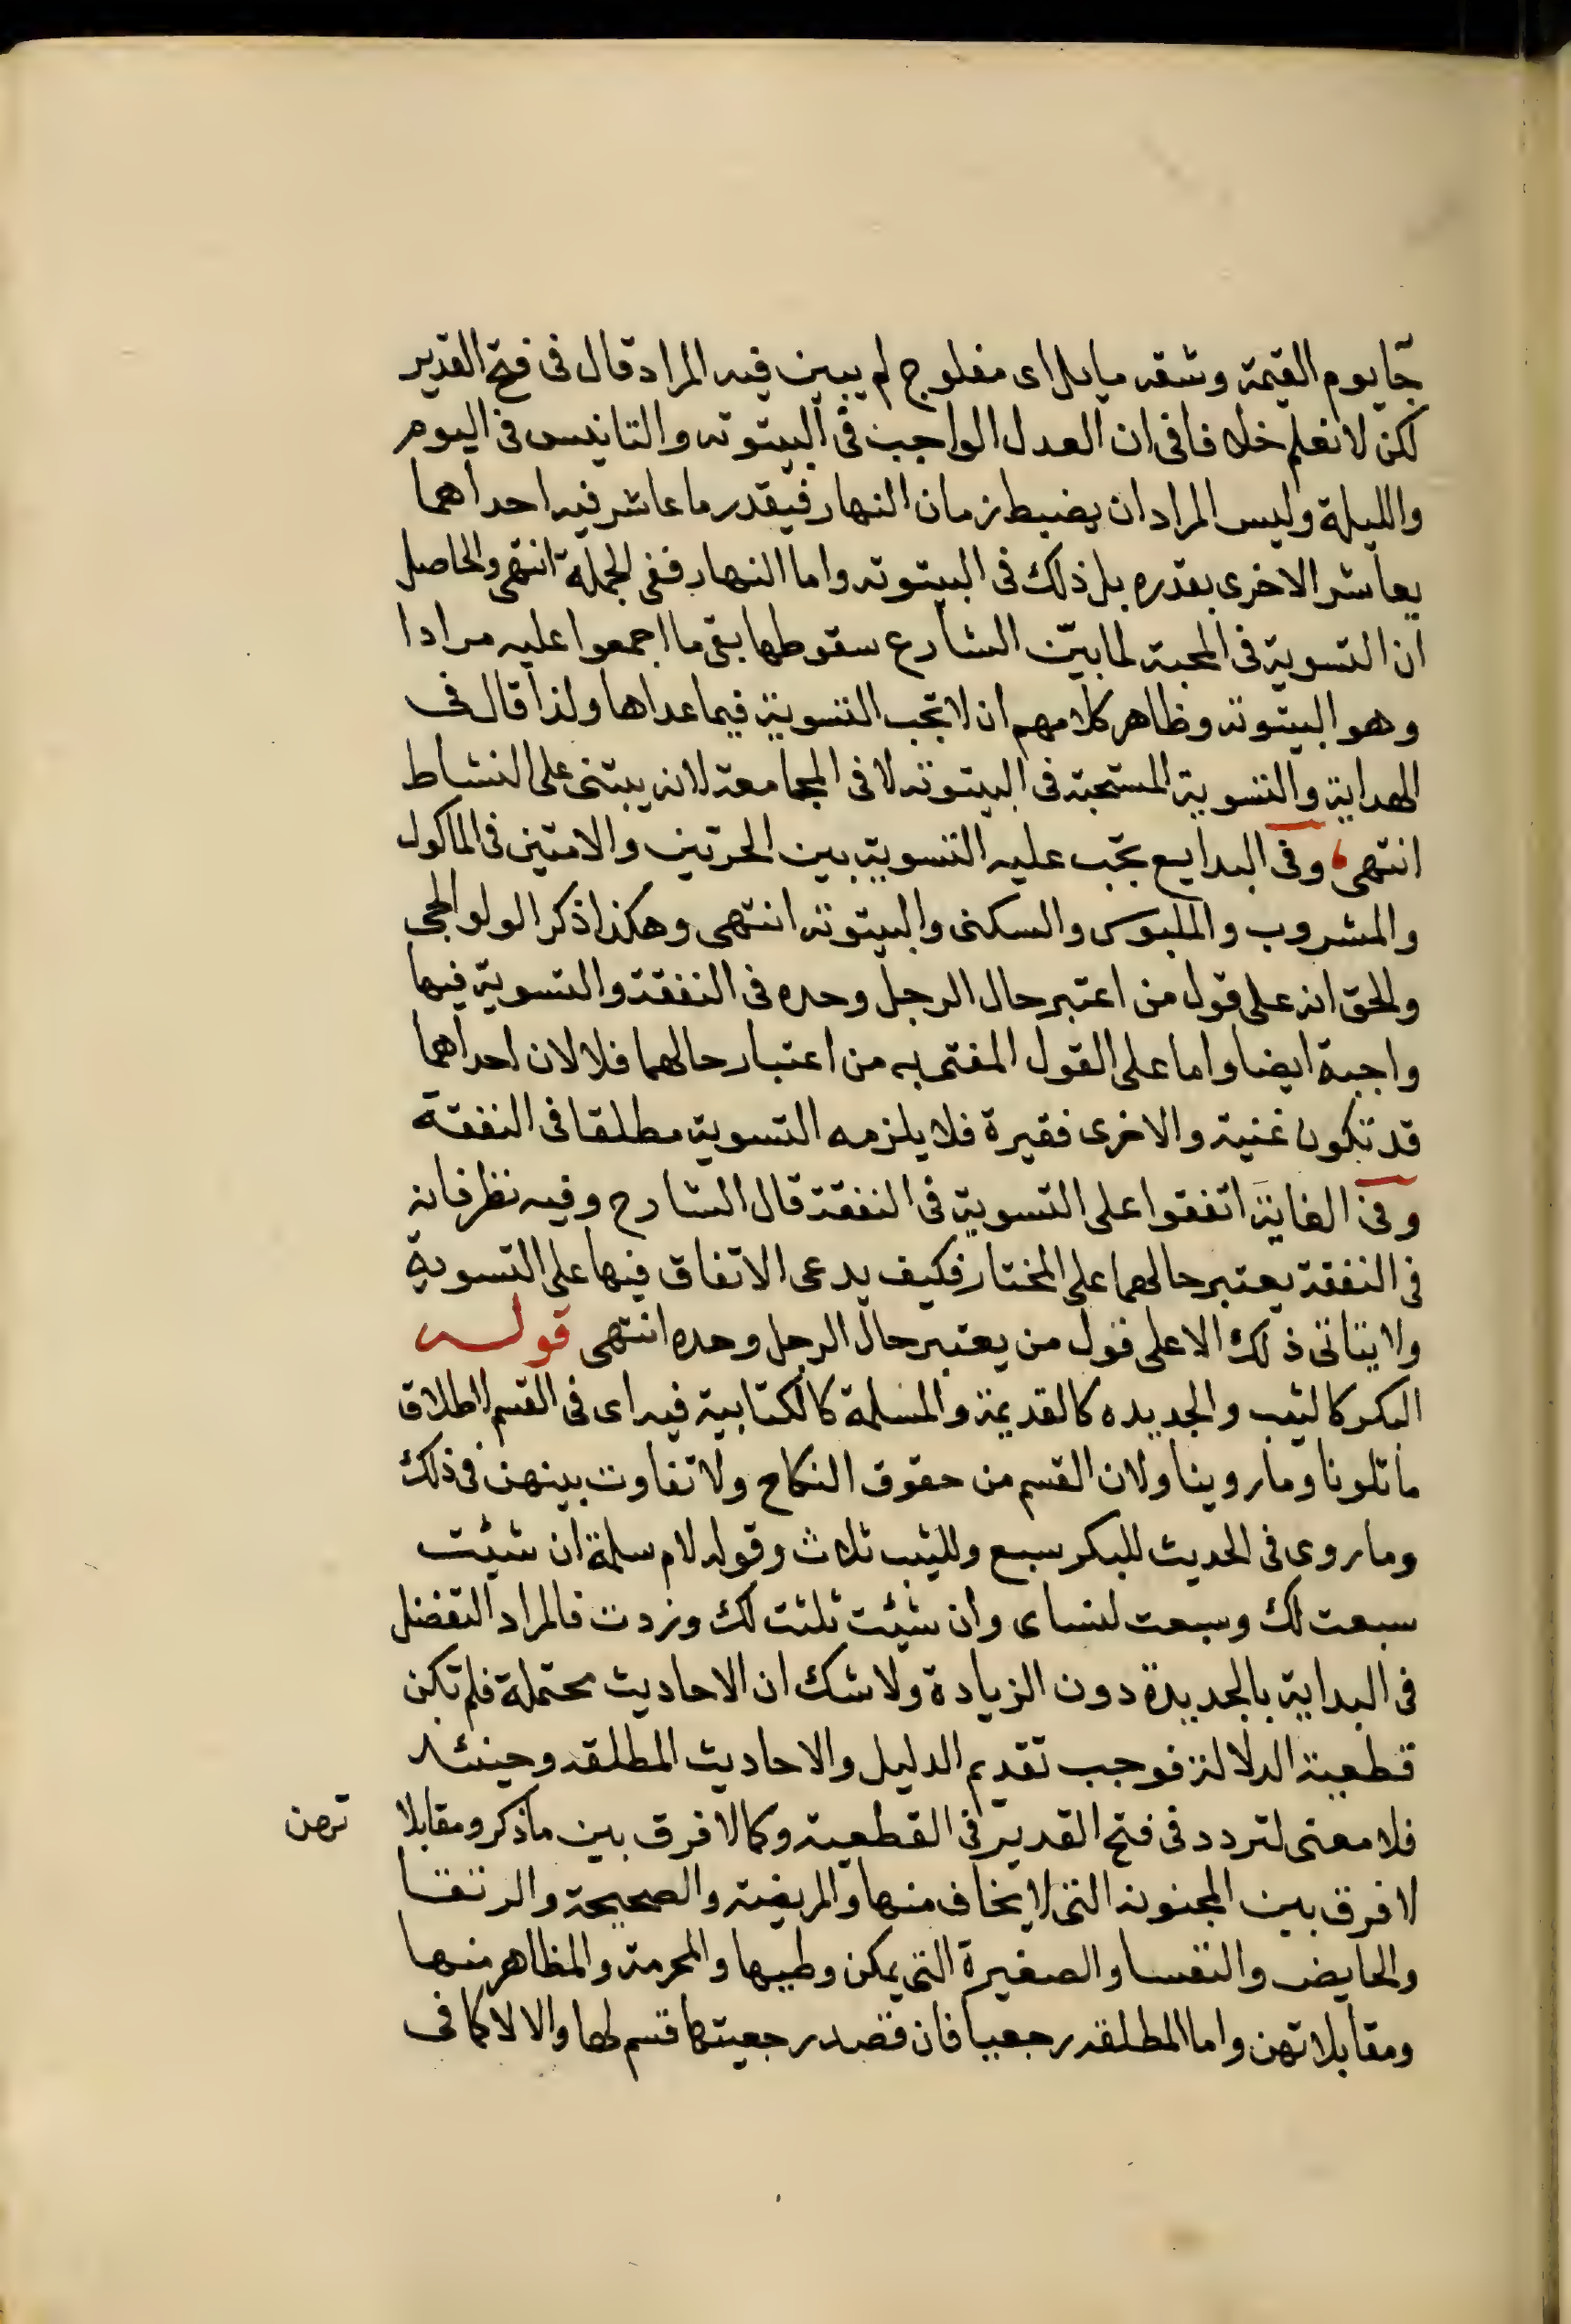 جآ يوم القيمة وشقه مايل اى مفلوج لم يبين فيه المراد قال فى فتح القدير
لكن لا نعلم خلافا فى ان العدل الواجب فى البيتوته والتانيس فى اليوم
والليلة وليس المراد ان يضبط زمان النهار فبقدر ما عاشر فيه احداهما
يعاشر الاخرى بقدره بل ذلك فى البيتوته واما النهار ففى الجملة انتهى والحاصل
ان التسوية فى المحبة لما بيّن الشارع سقوطها بقى ما اجمعوا عليه مرادا
وهو البيتوتة وظاهر كلامهم ان لا تجب التسوية فيما عداها ولذا قال فى
الهداية والتسوية المستحبة فى البيتوتة لا فى المجامعة لانه يبتنى على النشاط
انتهى وفى البدايع يجب عليه التسوية بين الحرتين والامتين فى الماكول
والمشروب والملبوس والسكنى والبيتوتة انتهى وهكذا ذكر الولوالجى
والحق انه على قول من اعتبر حال الرجل وحده فى النفقة والتسوية فيها
واجبة ايضا واما على القول المفتى به من اعتبار حالهما فلا لان احداهما
قد تكون غنية والاخرى فقيرة فلا يلزمه التسوية مطلقا فى النفقة
وفى الغاية اتفقوا على التسوية فى النفقة قال الشارح وفيه نظر فانه
فى النفقة يعتبر حالهما على المختار فكيف يدعى الاتفاق فيها على التسوية
ولا يتاتى ذلك الا على قول من يعتبر حال الرجل وحده انتهى قوله
البكر كالثيب والجديده كالقديمة والمسلمة كالكتابية فيه اى فى القسم لاطلاق
ما تلونا وما روينا ولان القسم من حقوق النكاح ولا تفاوت بينهن فى ذلك
وما روى فى الحديث للبكر سبع وللثيب ثلاث وقوله لام سلمة ان شيئت
سبعت لك وسبعت لنساى وان شيئت ثلثت لك وزدت فالمراد التفضل
فى البداية بالجديدة دون الزيادة ولا شك ان الاحاديث محتملة فلم تكن
قطعية الدلالة فوجب تقديم الدليل والاحاديث المطلقه وحينئذ
فلا معنى لتردد فى فتح القدير فى القطعية وكما لا فرق بين ما ذكر ومقابلا تهن
لا فرق بين المجنونة التى لا يخاف منها والمريضة والصحيحة والرتقا
والحايض والنفسا والصغيرة التى يمكن وطيها والمحرمة والمظاهر منها
ومقابلاتهن واما المطلقه رجعيا فان قصد رجعيتها قسم لها والا لا كما فى